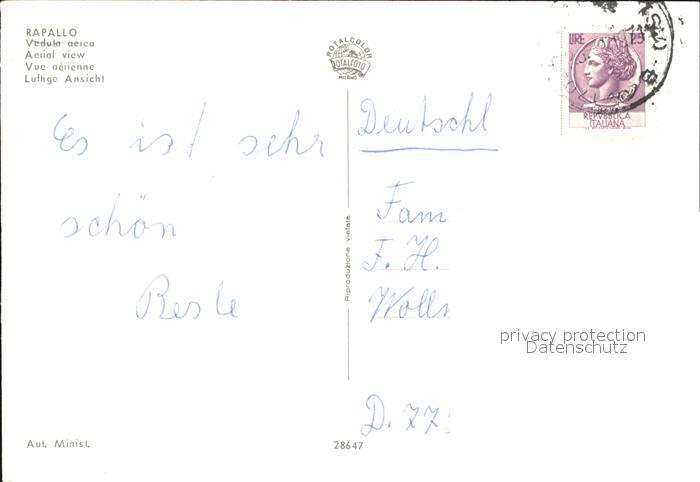 RAPALLO
Veduta aerea
Aerial view
Vue aérienne
Luftige Ansicht
ROTALCOLOR
ROTALFOTO
MILANO
LIRE 25
REPVBBLICA
ITALIANA
Es ist sehr
schön
Deutschl
Fam
F. H.
Woll
D. 77
Riproduzione vietata
privacy protection
Datenschutz
Aut. Minist.
28647